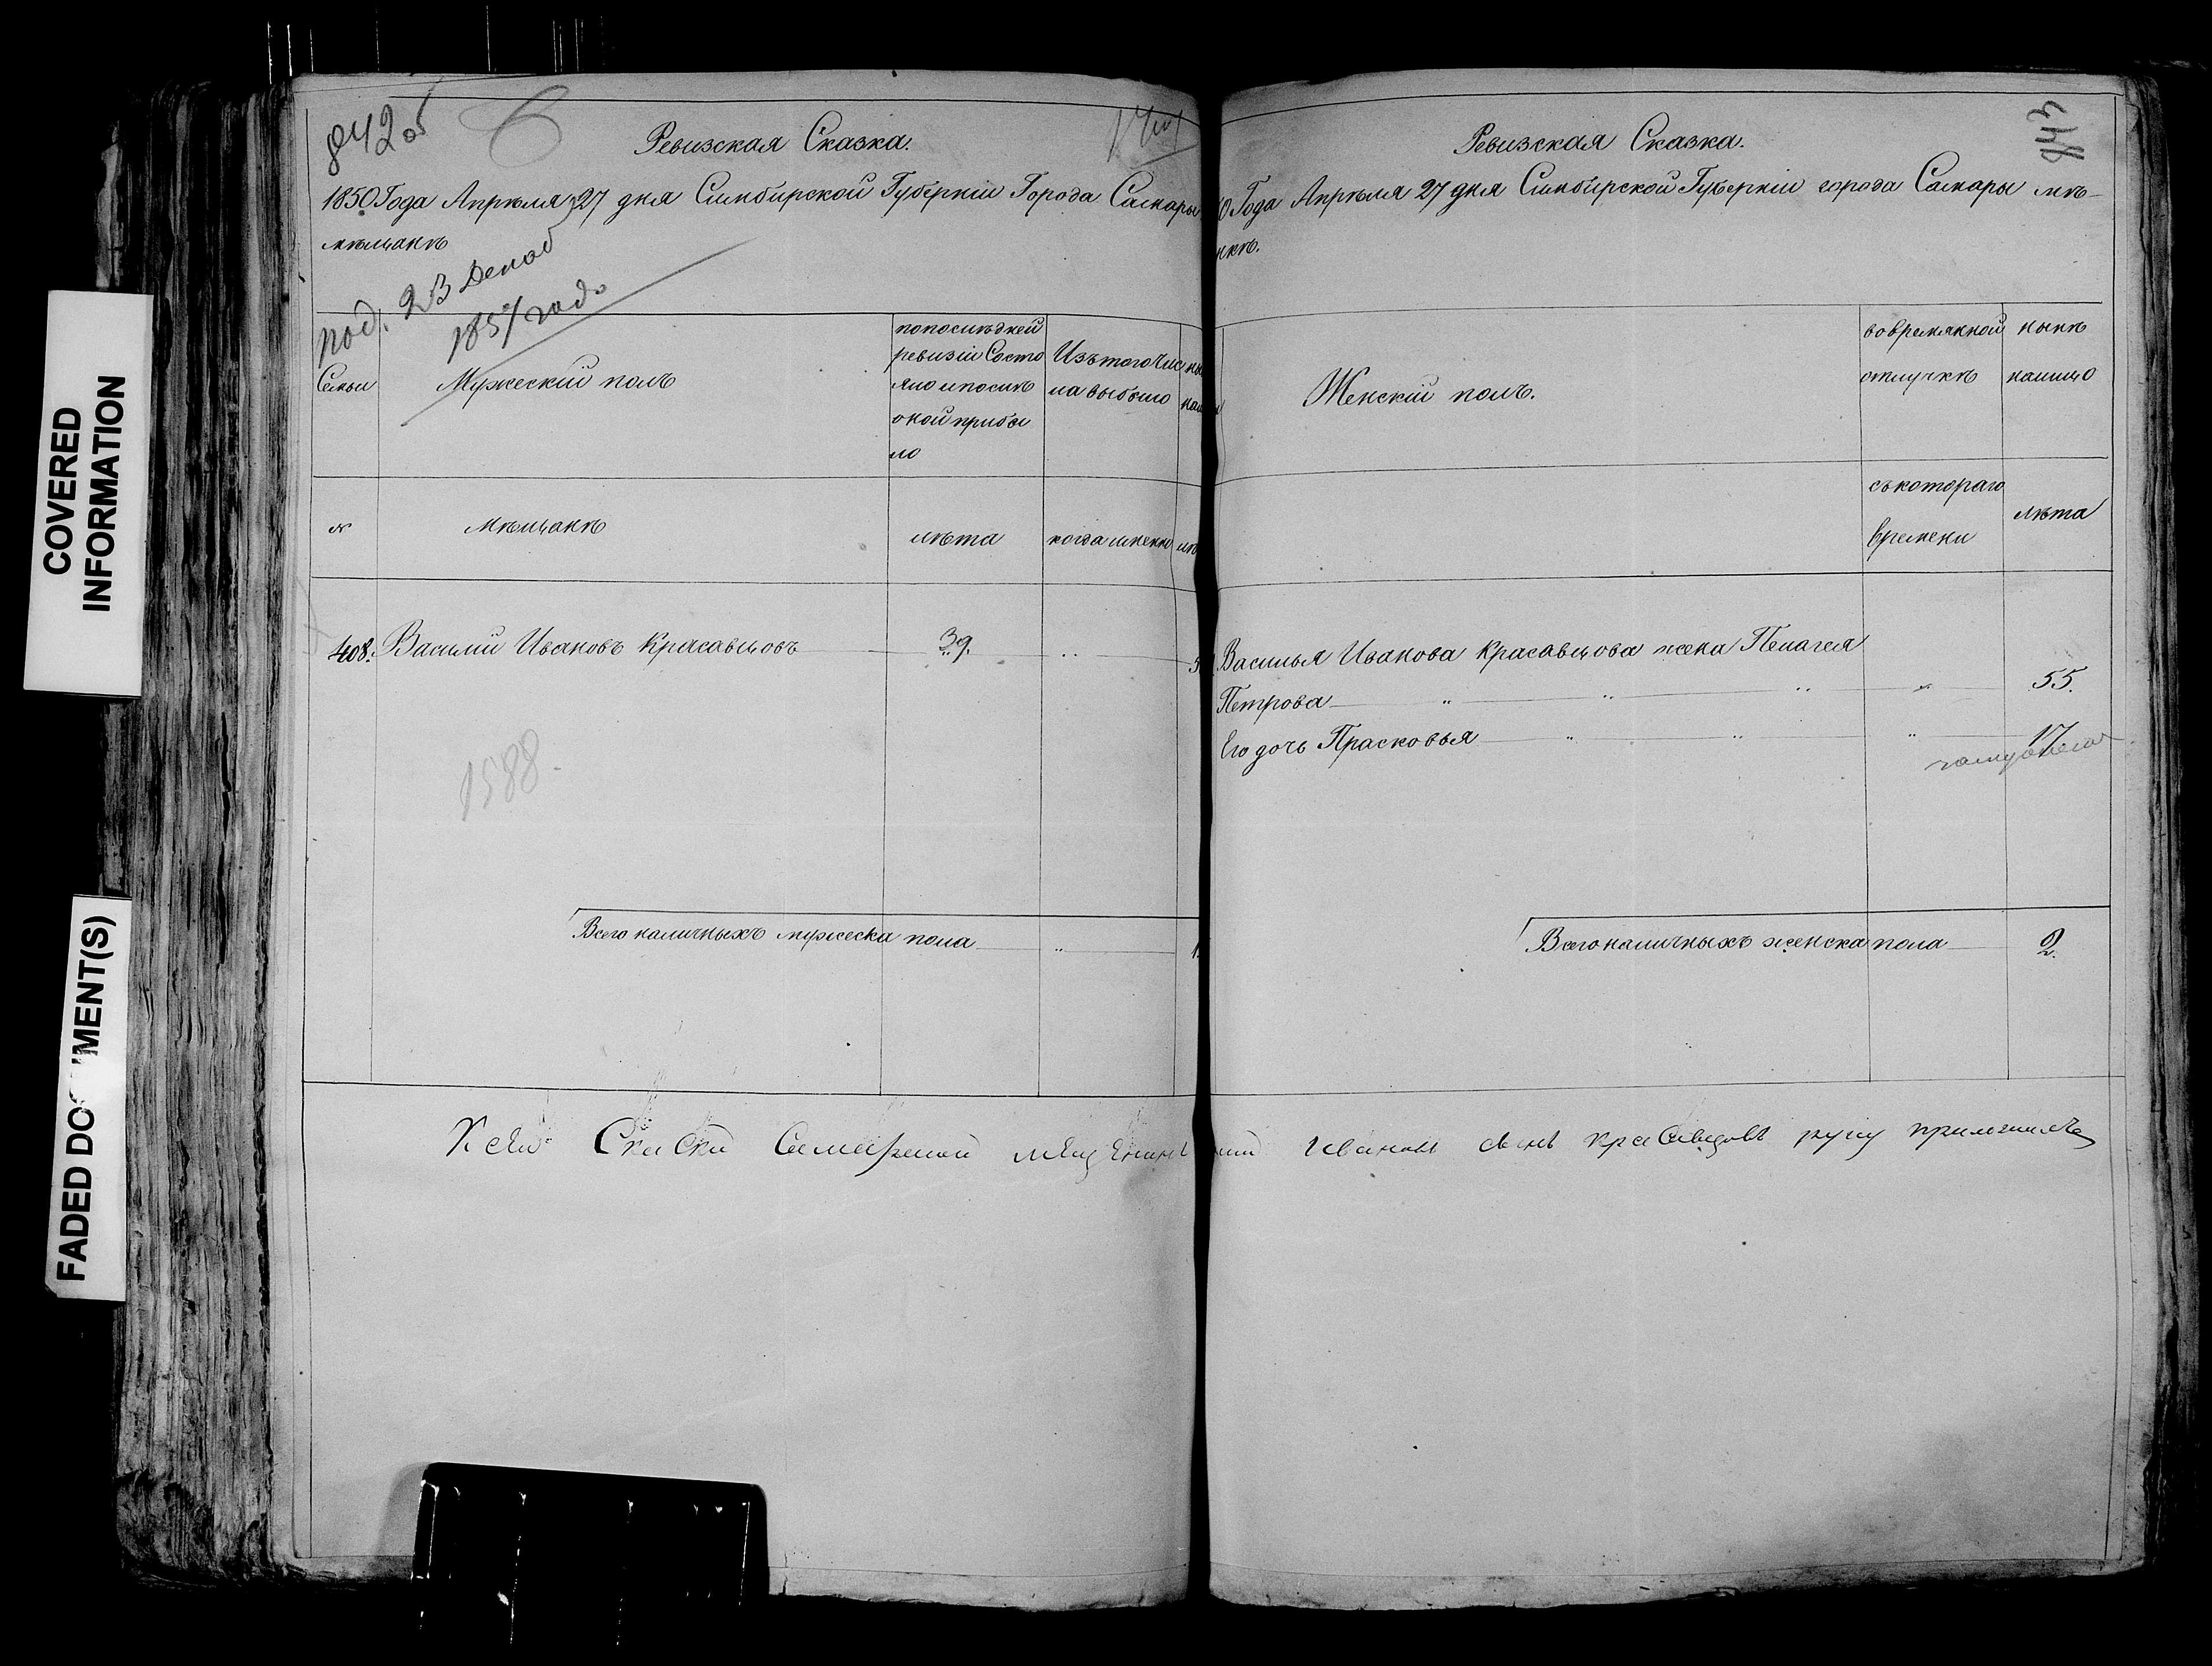 COVERED
INFORMATION
FADED DOCUMENT(S)
842 об
Ревизская Сказка.
1850 Года Апрѣля 27 дня Симбирской Губерніи Города Самары
мѣщанъ
под. 23 Декаб
185 года
Семьи
Мужескій полъ
по послѣдней
ревизіи Состо
яло и послѣ
оной прибы
ло
Изъ того Чис
ла выбыло
№
Мѣщанѣ
лѣта
когда именно
408. Василій Ивановъ Красавцовъ 39.
1588.
Всего наличныхъ мужеска пола 1.
843
Ревизская Сказка.
0 Года Апрѣля 27 дня Симбирской Губерніи города Самары мѣ-
Женскій полъ.
во временной
отлучкѣ
нынѣ
на лицо
съ котораго
времени
лѣта
Василья Иванова Красавцова жена Пелагея
Петрова 55.
Его дочь Прасковья 17
замуж
Всего наличныхъ женска пола 2.
К сей Скаски Самарской мещенинъ Ивановъ сынъ Красавцовъ руку приложилъ